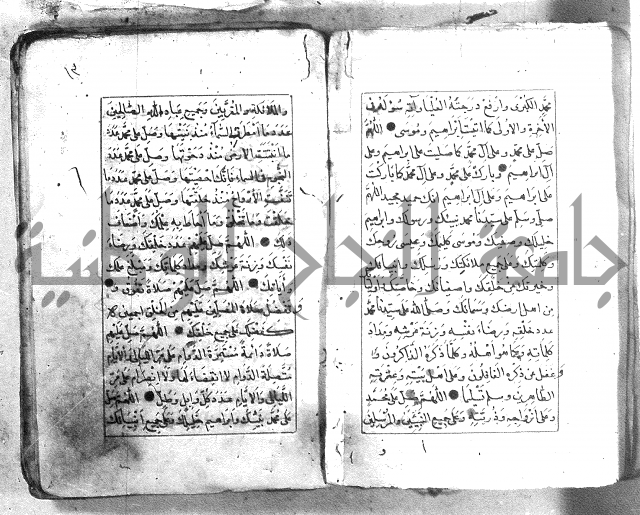 محمد الكبرى وارفع درجته العليا وآته سؤله في
الآخرة والاولى كما اتيت ابراهيم وموسى اللهم
صل على محمد وعلى آل محمد كما صليت على ابراهيم وعلى
آل ابراهيم وبارك على محمد وعلى آل محمد كما باركت
على ابراهيم وعلى آل ابراهيم انك حميد مجيد اللهم
صل وسلم على سيدنا محمد نبيك ورسولك وابراهيم
خليلك وصفيك وموسى كليمك وعيسى روحك
وكلمتك وعلى جميع ملائكتك ورسلك وانبيائك
وخيرتك من خلقك واصفيائك وخاصتك اوليائك
من اهل ارضك وسمائك وصلى الله على سيدنا محمد
عدد خلقه ورضاء نفسه وزنة عرشه ومداد
كلماته وكما هو اهله وكلما ذكره الذاكرون
وغفل عن ذكره الغافلون وعلى اهل بيته وعترته
الطاهرين وسلم تسليما اللهم صل على محمد
وعلى ازواجه وذريته وعلى جميع النبيين والمرسلين
١٣
والملائكة والمقربين وجميع عباد الله الصالحين
عدد ما امطرت السماء منذ بنيتها وصل على محمد عدد
ما انبتت الارض منذ دحوتها وصل على محمد عدد
النجوم في السماء فانك احصيتها وصل على محمد عدد ما
تنفست الارواح منذ خلقتها وصل على محمد عدد ما
خلقت وما تخلق وما احاط به علمك واضعاف
ذلك اللهم صل عليهم عدد خلقك ورضاء
نفسك وزنة عرشك ومداد كلماتك ومبلغ علمك
وآياتك اللهم صل عليهم صلاة تفوق
وتفضل صلاة المصلين عليهم من الخلق اجمعين
كفضلك على جميع خلقك اللهم صل عليهم
صلاة دائمة مستمرة الدوام على مر الليالي والايام
متصلة الدوام لا انقضاء لها ولا انصرام على مر
الليالي والايام عدد كل وابل وطل اللهم صل
على محمد نبيك وابراهيم خليلك وعلى جميع انبيائك
جامعة النجاح الوطنية